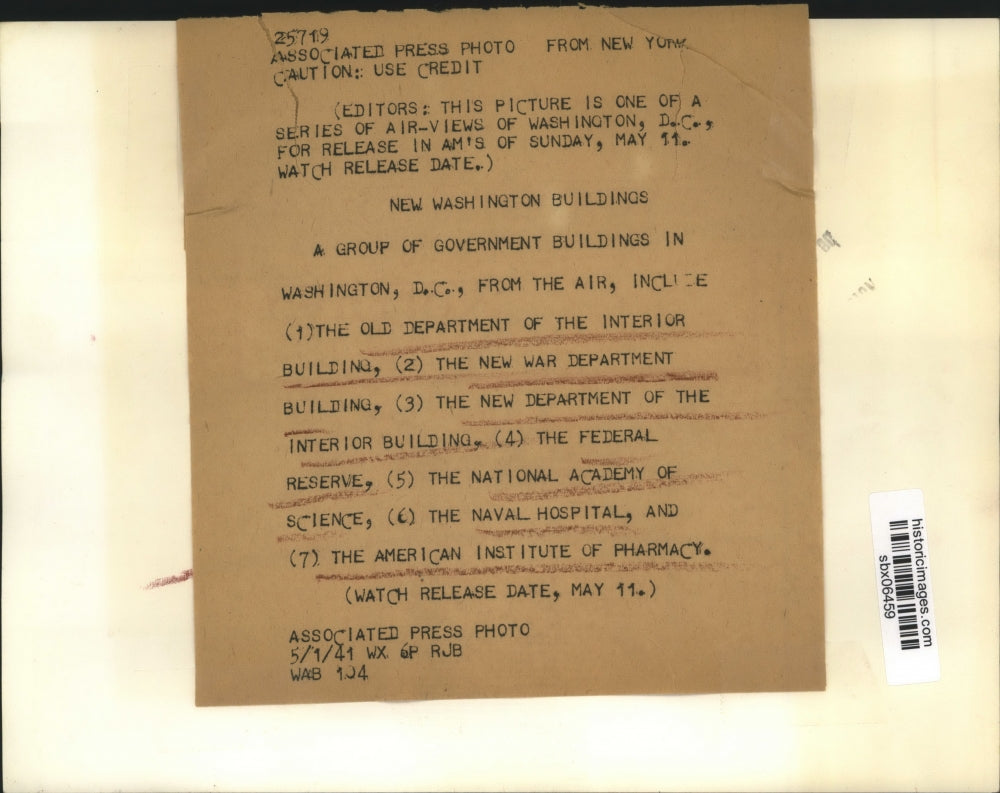 25719
ASSOCIATED PRESS PHOTO FROM NEW YORK
CAUTION: USE CREDIT
(EDITORS: THIS PICTURE IS ONE OF A
SERIES OF AIR-VIEWS OF WASHINGTON, D.C.,
FOR RELEASE IN AM'S OF SUNDAY, MAY 11.
WATCH RELEASE DATE.)
NEW WASHINGTON BUILDINGS
A GROUP OF GOVERNMENT BUILDINGS IN
WASHINGTON, D.C., FROM THE AIR, INCLUDE
(1)THE OLD DEPARTMENT OF THE INTERIOR
BUILDING, (2) THE NEW WAR DEPARTMENT
BUILDING, (3) THE NEW DEPARTMENT OF THE
INTERIOR BUILDING, (4) THE FEDERAL
RESERVE, (5) THE NATIONAL ACADEMY OF
SCIENCE, (6) THE NAVAL HOSPITAL, AND
(7) THE AMERICAN INSTITUTE OF PHARMACY.
(WATCH RELEASE DATE, MAY 11.)
ASSOCIATED PRESS PHOTO
5/1/41 WX 6P RJB
WAB 104
historicimages.com
sbx06459